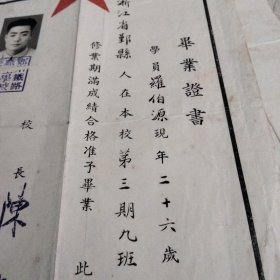 畢業證書
學員羅伯源現年二十六歲
浙江省鄞縣人在本校第三期九班
修業期滿成績合格准予畢業
此
校長陳